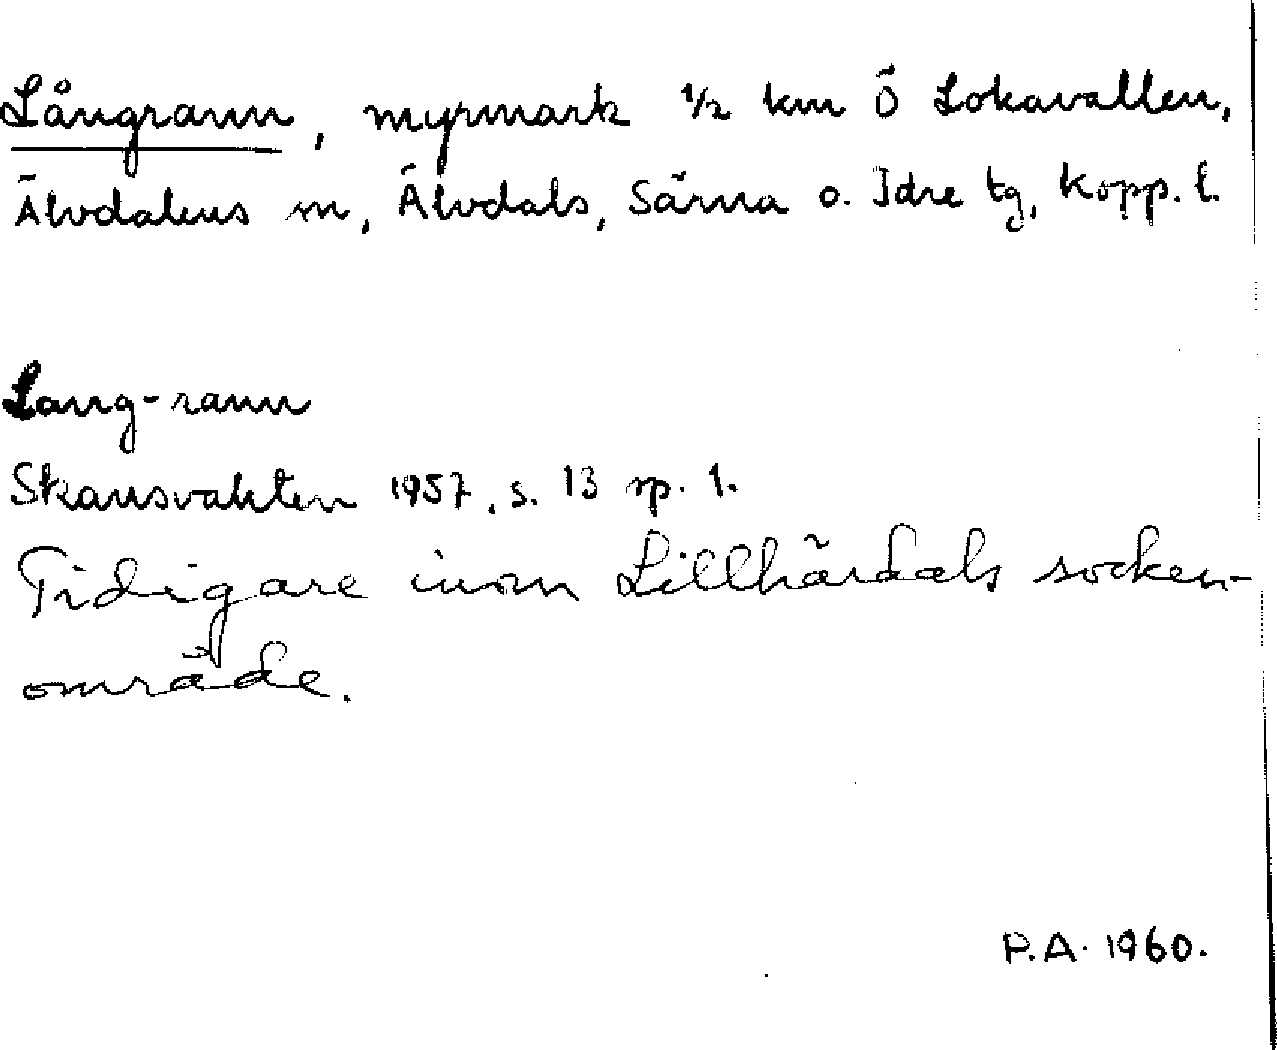 Långrann, myrmark 1/2 km Ö Lokavallen,
Älvdalens m, Älvdals, Särna o. Idre tg, Kopp. l.
Lang-rann
Skansvakten 1957, s. 13 sp. 1.
Tidigare inom Lillhärdals socken-
område.
P.A. 1960.